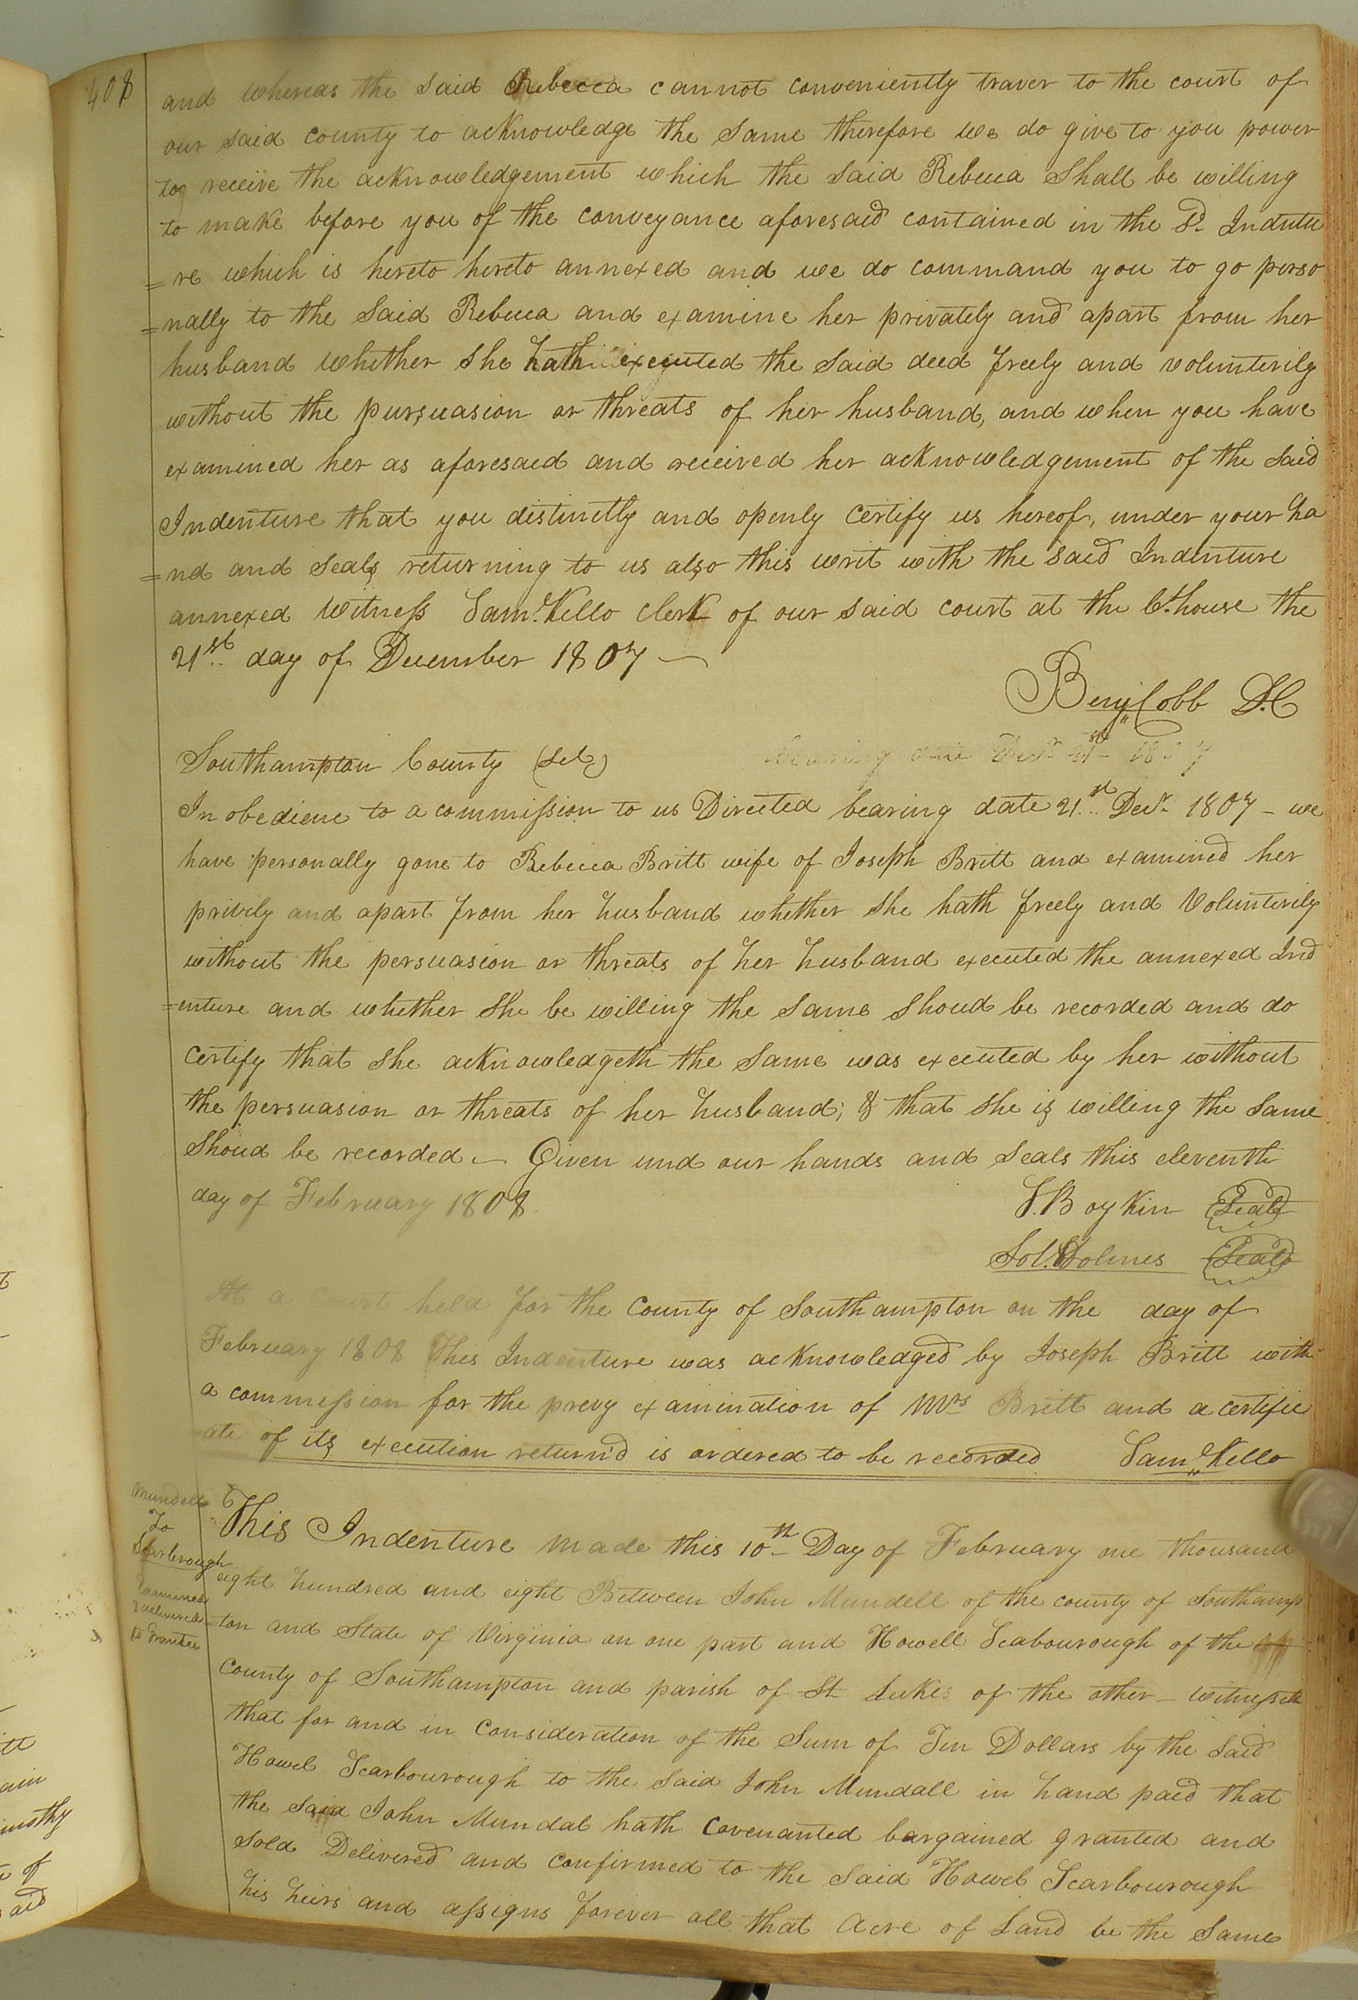 408
and whereas the said Rebecca cannot conveniently traver to the court of
our said county to acknowledge the same therefore we do give to you power
to receive the acknowledgement which the said Rebecca shall be willing
to make before you of the conveyance aforesaid contained in the sd. Indntu
=re which is hereto hereto annexed and we do command you to go perso
=nally to the said Rebecca and examine her privately and apart from her
husband whether she hath executed the said deed freely and volunterily
without the pursuasion or threats of her husband, and when you have
examined her as aforesaed and received her acknowledgement of the said
Indenture that you distinctly and openly certify us hereof, under your ha
=nd and seals returning to us also this writ with the said Indenture
annexed Witness Saml. Kello clerk of our said court at the Ct.house the
21st day of December 1807 —
Benj Cobb D.C
Southampton County (sct)
bearing date Decr. 21st 1807
In obedience to a commission to us Directed bearing date 21st Decr. 1807 - we
have personally gone to Rebecca Britt wife of Joseph Britt and examined her
privily and apart from her husband whether she hath freely and Volunterily
without the persuasion or threats of her husband executed the annexed Ind
=enture and whether she be willing the same shoud be recorded and do
certify that she acknowledgeth the same was executed by her without
the persuasion or threats of her husband; & that she is willing the same
shoud be recorded — Given und our hands and seals this eleventh
day of February 1808.
S. Boykin Seal
Sol. Holmes Seal
At a Court held for the county of Southampton on the day of
February 1808 This Indenture was acknowledged by Joseph Britt with
a commission for the prevy examination of Mrs Britt and a certific
=ate of its execution return'd is ordered to be recorded Saml Kello
Mundell
To
Scarbrough
Examined
& delivered
to Grantee
This Indenture made this 10th Day of February one thousand
eight hundred and eight Between John Mundell of the county of Southamp
=ton and State of Virginia on one part and Howell Scabourough of the
County of Southampton and parish of St Lukes of the other - Witnesseth
that for and in consideration of the Sum of Ten Dollars by the said
Howel Scarbourough to the said John Mundall in hand paid that
the said John Mundal hath Covenanted bargained granted and
sold Delivered and confirmed to the said Howel Scarbourough
his heirs and assigns forever all that Acre of Land be the same